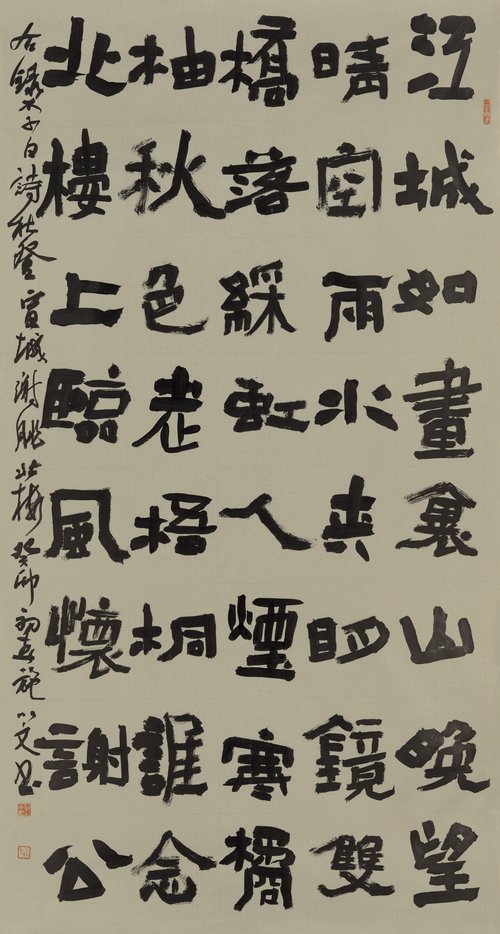 江城如畫裏山晚望
晴空兩水夾明鏡雙
橋落綵虹人煙寒橘
柚秋色老梧桐誰念
北樓上臨風懷謝公
右錄李白詩秋登宣城謝脁北樓癸卯初夏書